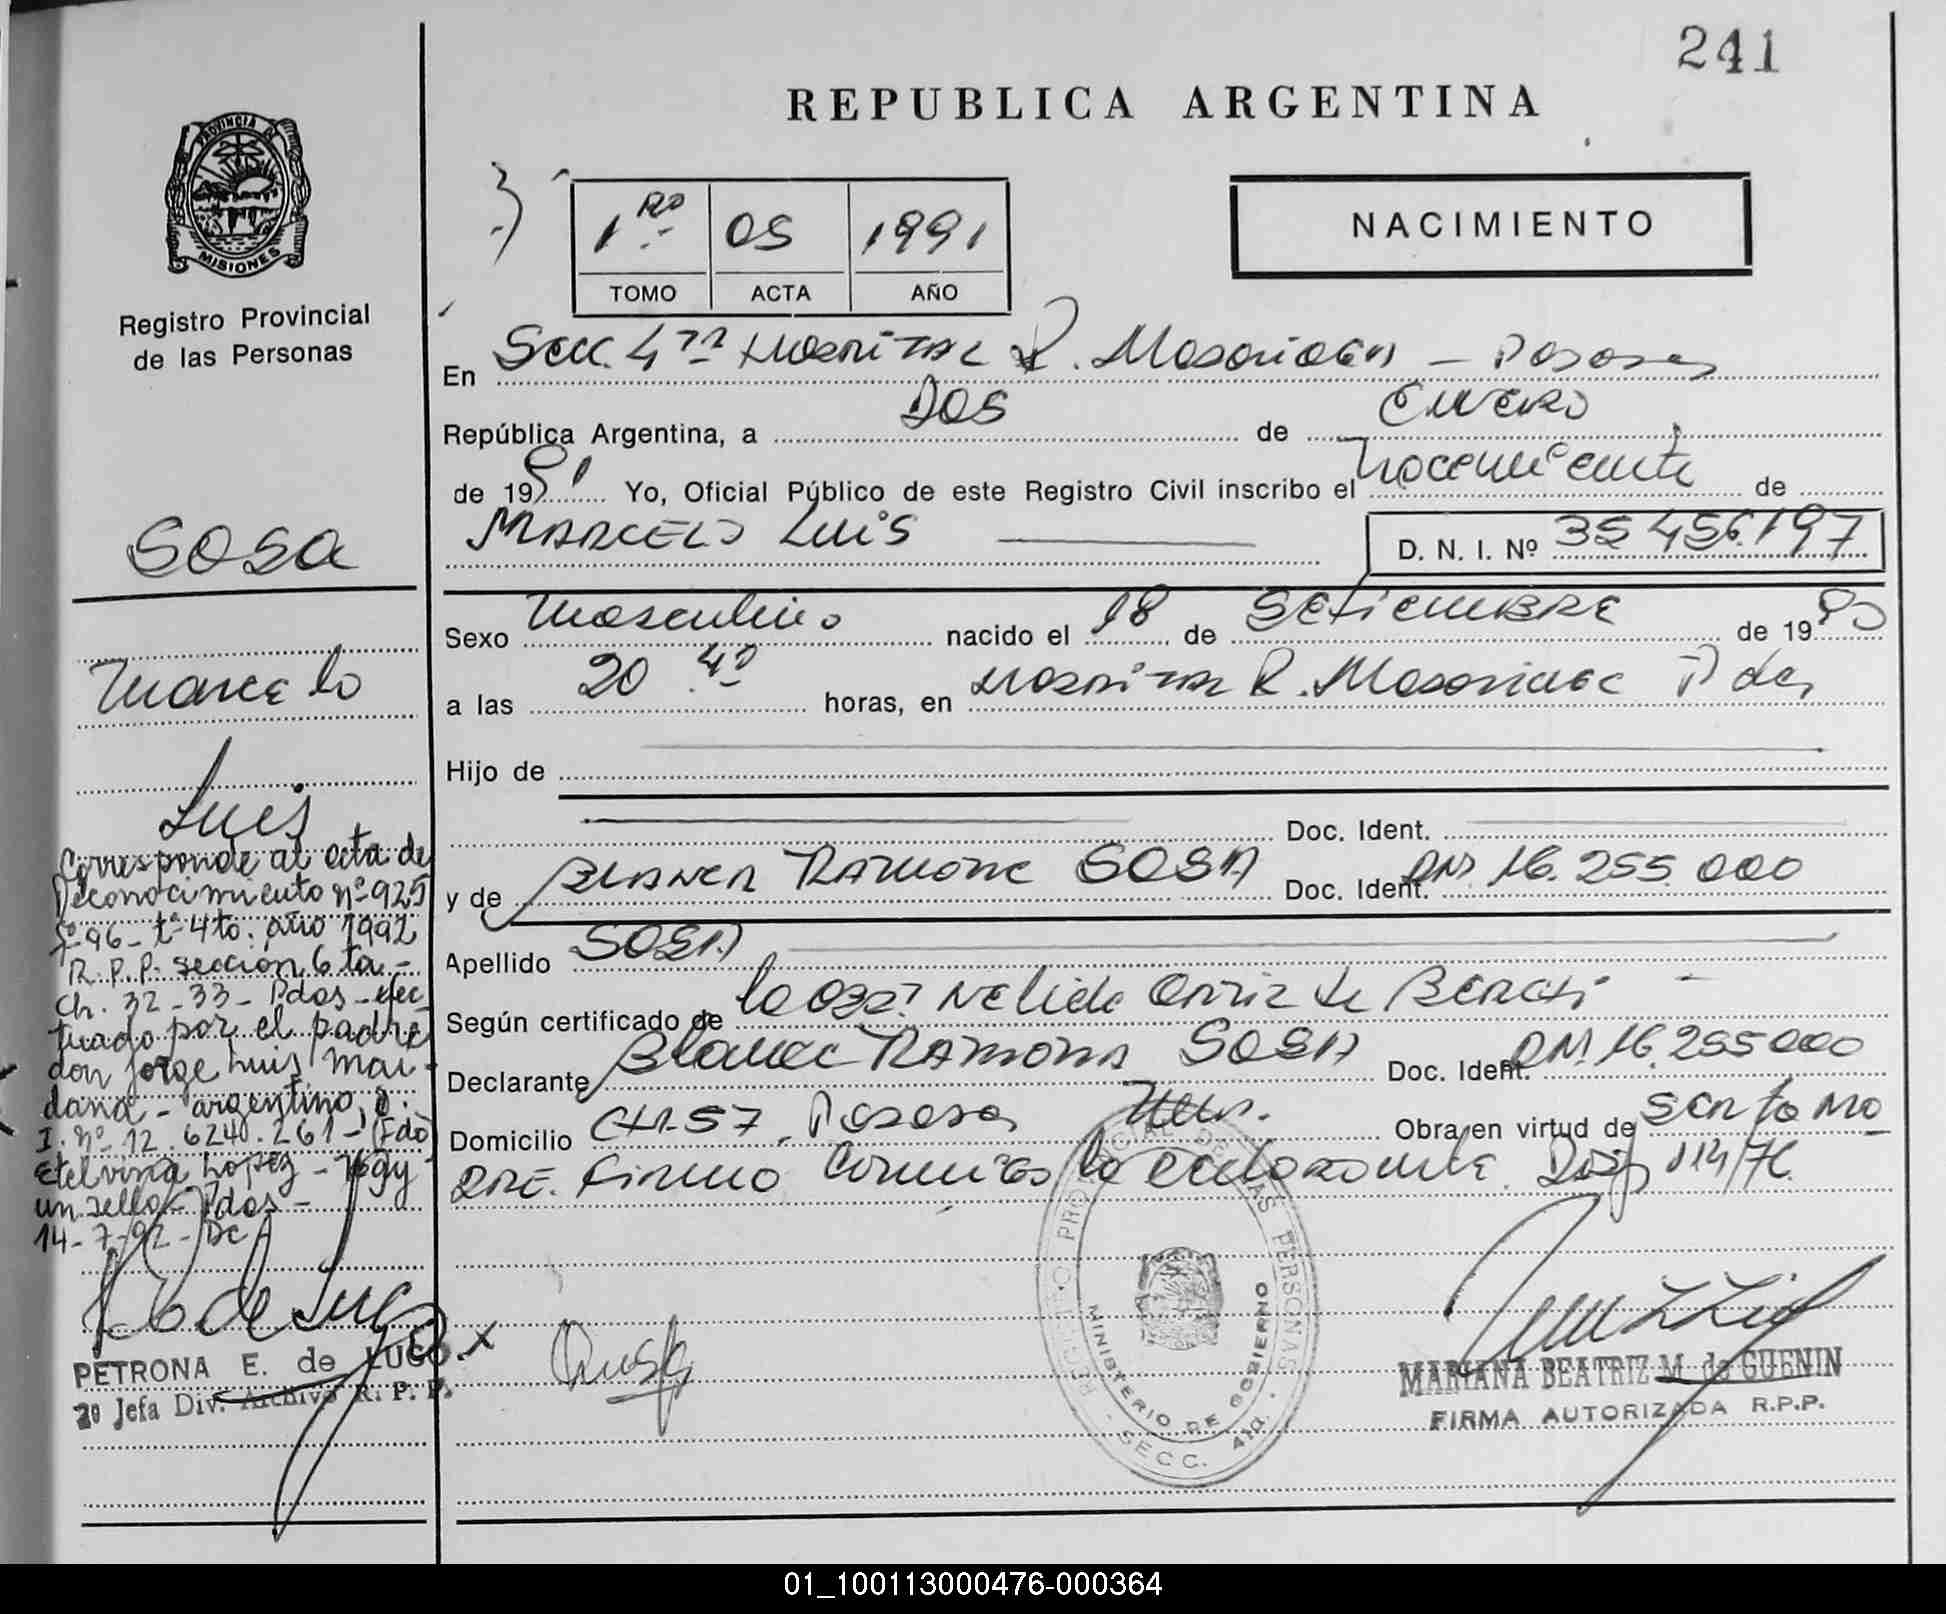 241
REPUBLICA ARGENTINA
PROVINCIA DE
MISIONES
Registro Provincial
de las Personas
1RO 05 1991
TOMO ACTA AÑO
NACIMIENTO
En Secc. 4ta Hospital R. Madariaga - Posadas
República Argentina, a DOS de ENERO
de 1991 Yo, Oficial Público de este Registro Civil inscribo el Nacimiento de
MARCELO LUIS D. N. I. Nº 35.456.197
Sexo Masculino nacido el 18 de SETIEMBRE de 1990
a las 20.40 horas, en Hospital R. Madariaga Pdas
Hijo de
Doc. Ident.
y de BLANCA RAMONA SOSA Doc. Ident. DNI 16.255.000
Apellido SOSA
Según certificado de la Obst. Nelida Ortiz de
Declarante Blanca RAMONA SOSA Doc. Ident. DNI 16.255000
Domicilio CH.57. Posadas Mnes. Obra en virtud de ser la Ma
DRE. Firma la declarante. Disp 114/76
SOSA
Marcelo
Luis
Corresponde al acta de
Reconocimiento nº 925
fº 96 - tº 4to. año 1992
R. P. P. sección 6 ta -
Ch. 32 - 33 - Pdas - efec
tuado por el padre
don Jorge Luis Mai-
dana - argentino, D.
I. nº 12.624.261 - Fdo
Etelvina Lopez - Hay
un sello - Pdas -
14-7-92 - DC
PETRONA E. de LUGO
2º Jefa Div. Archivo R. P. P.
REGISTRO PROVINCIAL DE LAS PERSONAS
MINISTERIO DE GOBIERNO
SECC. 4ta.
MARIANA BEATRIZ M. de GUENIN
FIRMA AUTORIZADA R.P.P.
01_100113000476-000364